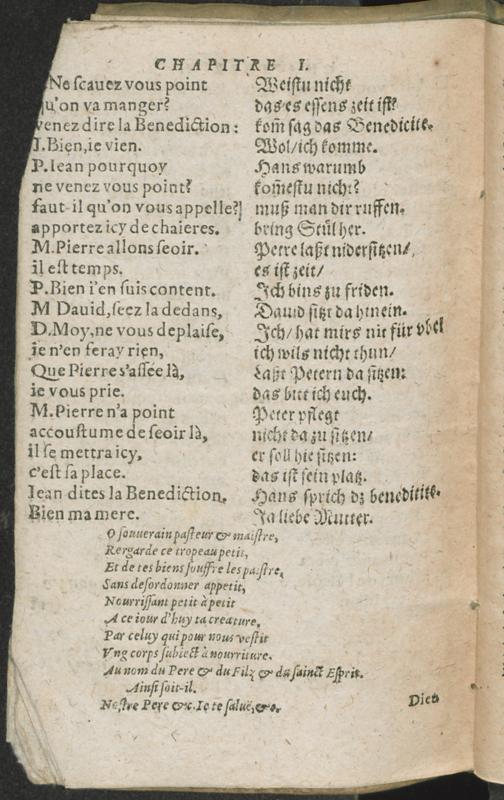 CHAPITRE I.
Ne scauez vous point
qu'on va manger?
venez dire la Benediction:
I. Bien, ie vien.
P. Iean pourquoy
ne venez vous point?
faut-il qu'on vous appelle?
apportez icy de chaieres.
M. Pierre allons seoir.
il est temps.
P. Bien i'en suis content.
M Dauid, seez la dedans,
D. Moy, ne vous deplaise,
ie n'en feray rien,
Que Pierre s'assée là,
ie vous prie.
M. Pierre n'a point
accoustume de seoir là,
il se mettra icy,
c'est sa place.
Iean dites la Benediction.
Bien ma mere.
Weistu nicht
das es essens zeit ist?
kom̃ sag das Benedicite.
Wol/ich komme.
Hans warumb
kom̃estu nicht?
muß man dir ruffen.
bring Stül her.
Petre laßt nidersitzen/
es ist zeit/
Ich bins zu friden.
Dauid sitzt da hinein.
Ich/ hat mirs nit für vbel
ich wils nicht thun/
Laßt Petern da sitzen:
das bitt ich euch.
Peter pflegt
nicht da zu sitzen/
er soll hie sitzen:
das ist sein platz.
Hans sprich dz beneditite.
Ja liebe Mutter.
O souuerain pasteur & maistre,
Rergarde ce tropeau petit,
Et de tes biens souffre les paistre,
Sans desordonner appetit,
Nourrissant petit à petit
A ce iour d'huy ta creature,
Par celuy qui pour nous vestit
Vng corps subiect à nourriture.
Au nom du Pere & du Filz & du sainct Esprit.
Ainsi soit-il.
Nostre Pere &c. Ie te saluë, &c.
Dieu